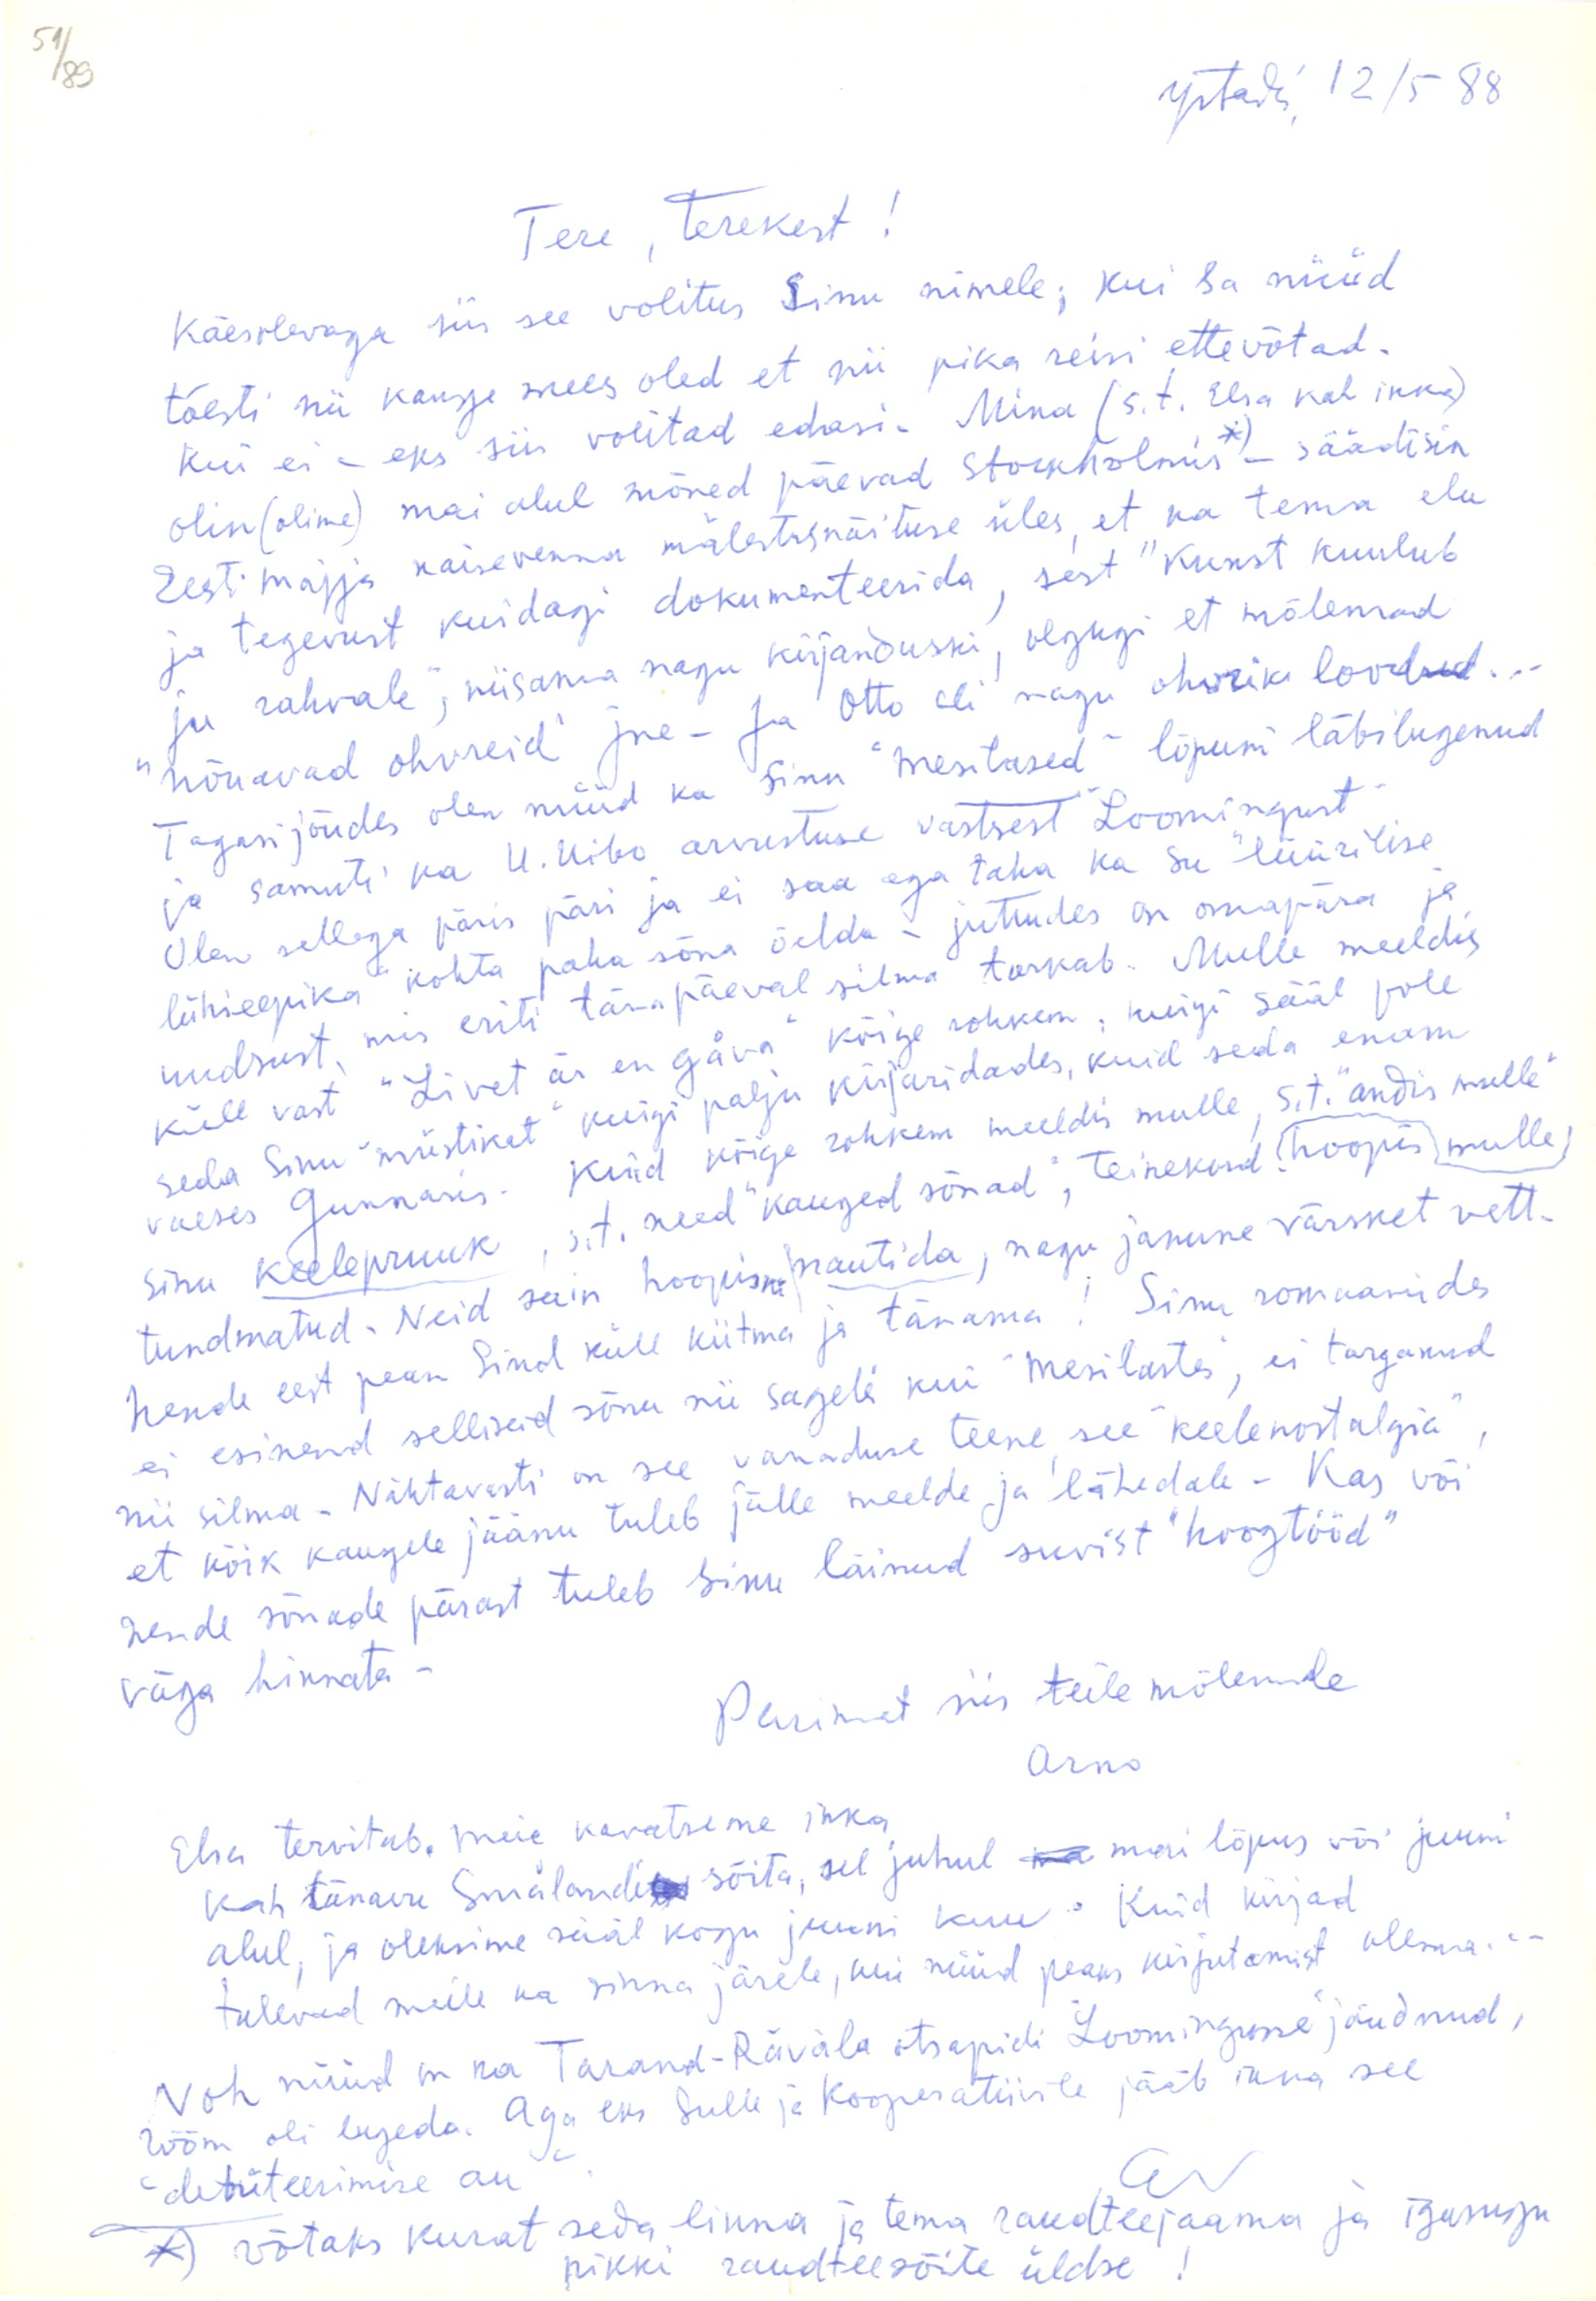 51/89
Ystadis, 12/5 88
Tere, Terekest!
Käesolevaga siis see volitus Sinu nimele; kui Sa nüüd
tõesti nii kange mees oled et nii pika reisi ettevõtad.
Kui ei – eks siis volitad edasi. Mina (s.t. Elsa kah inka)
olin (olime) mai alul mõned päevad Stockholmis*) – säädisin
Eesti Majja naisevenna mälestusnäituse üles, et ka tema elu
ja tegevust kuidagi dokumenteerida, sest "Kunst kuulub
ju rahvale", niisama nagu kirjanduski, olgugi et mõlemad
"nõuavad ohvreid" jne – Ja Otto oli nagu ohvriks loodud...
Tagasi jõudes olen nüüd ka Sinu "Mesilased" lõpuni läbilugenud
ja samuti ka U. Uibo arvustuse vastsest "Loomingust"
Olen sellega päris päri ja ei saa ega taha ka Su "lüürilise
lühieepika" kohta paha sõna öelda – juttudes on omapära ja
uudsust, mis eriti tänapäeval silma torkab. Mulle meeldis
küll vast "Livet är en gåva" kõige rohkem, kuigi sääl pole
seda Sinu "müstikat" kuigi palju kirjaridades, kuid seda enam
vaeses Gunnaris. Kuid kõige rohkem meeldis mulle, s.t. "andis mulle"
Sinu keelepruuk, s.t. need "kauged sõnad", teinekord hoopis mulle
tundmatud. Neid sain hoopis nautida, nagu janune värsket vett.
Nende eest pean Sind küll kiitma ja tänama! Sinu romaanides
ei esinend selliseid sõnu nii sageli kui "Mesilastes", ei targanud
nii silma – Nähtavasti on see vanaduse teene, see "keelenostalgia",
et kõik kaugele jäänu tuleb jälle meelde ja lähedale – Kas või
nende sõnade pärast tuleb Sinu läinud suvist "hoogtööd"
väga hinnata –
Parimat siis teile mõlemile
Arno
Elsa tervitab. Meie kavatseme inka
kah tänavu Smålandi sõita, sel juhul mai lõpus või juuni
alul, ja oleksime sääl kogu juuni kuu. Kuid kirjad
tulevad meile ka sinna järele, kui nüüd peaks kirjutamist olema...
Noh nüüd on ka Tarand-Rävala otsapidi "Loomingusse" jõudnud,
rõõm oli lugeda. Aga eks Sulle ja Kooperatiivile jääb inka see
"debüteerimise au".
AV
*) võtaks kurat seda linna ja tema raudteejaama ja igasugu
pikki raudteesõite üldse!